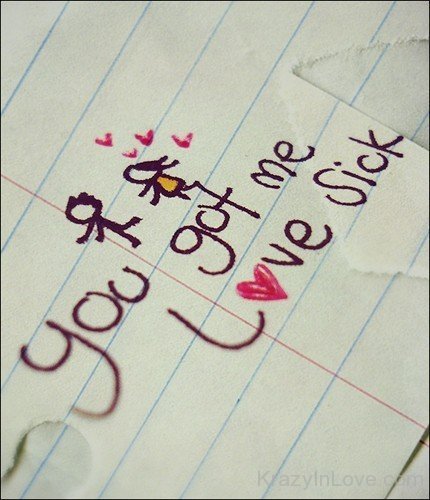 you got me
Love Sick
KrazyInLove.com